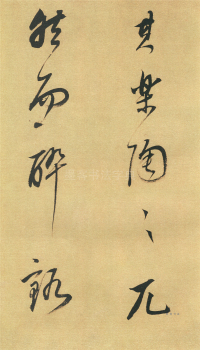 其樂陶〻兀
然而醉豁